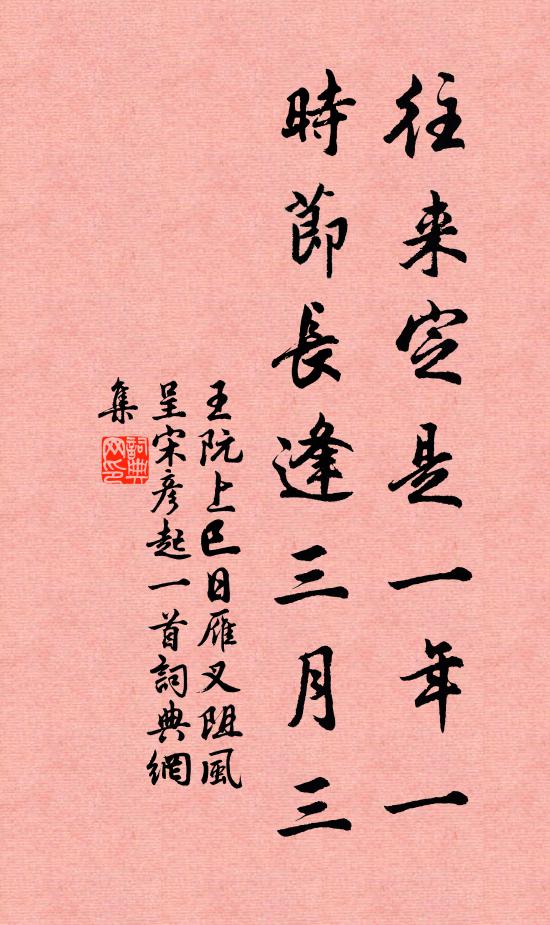 往来定是一年一
時節長逢三月三
王阮上巳日雁叉阻風
呈宋彦起一首詞典網
集
詞典網印